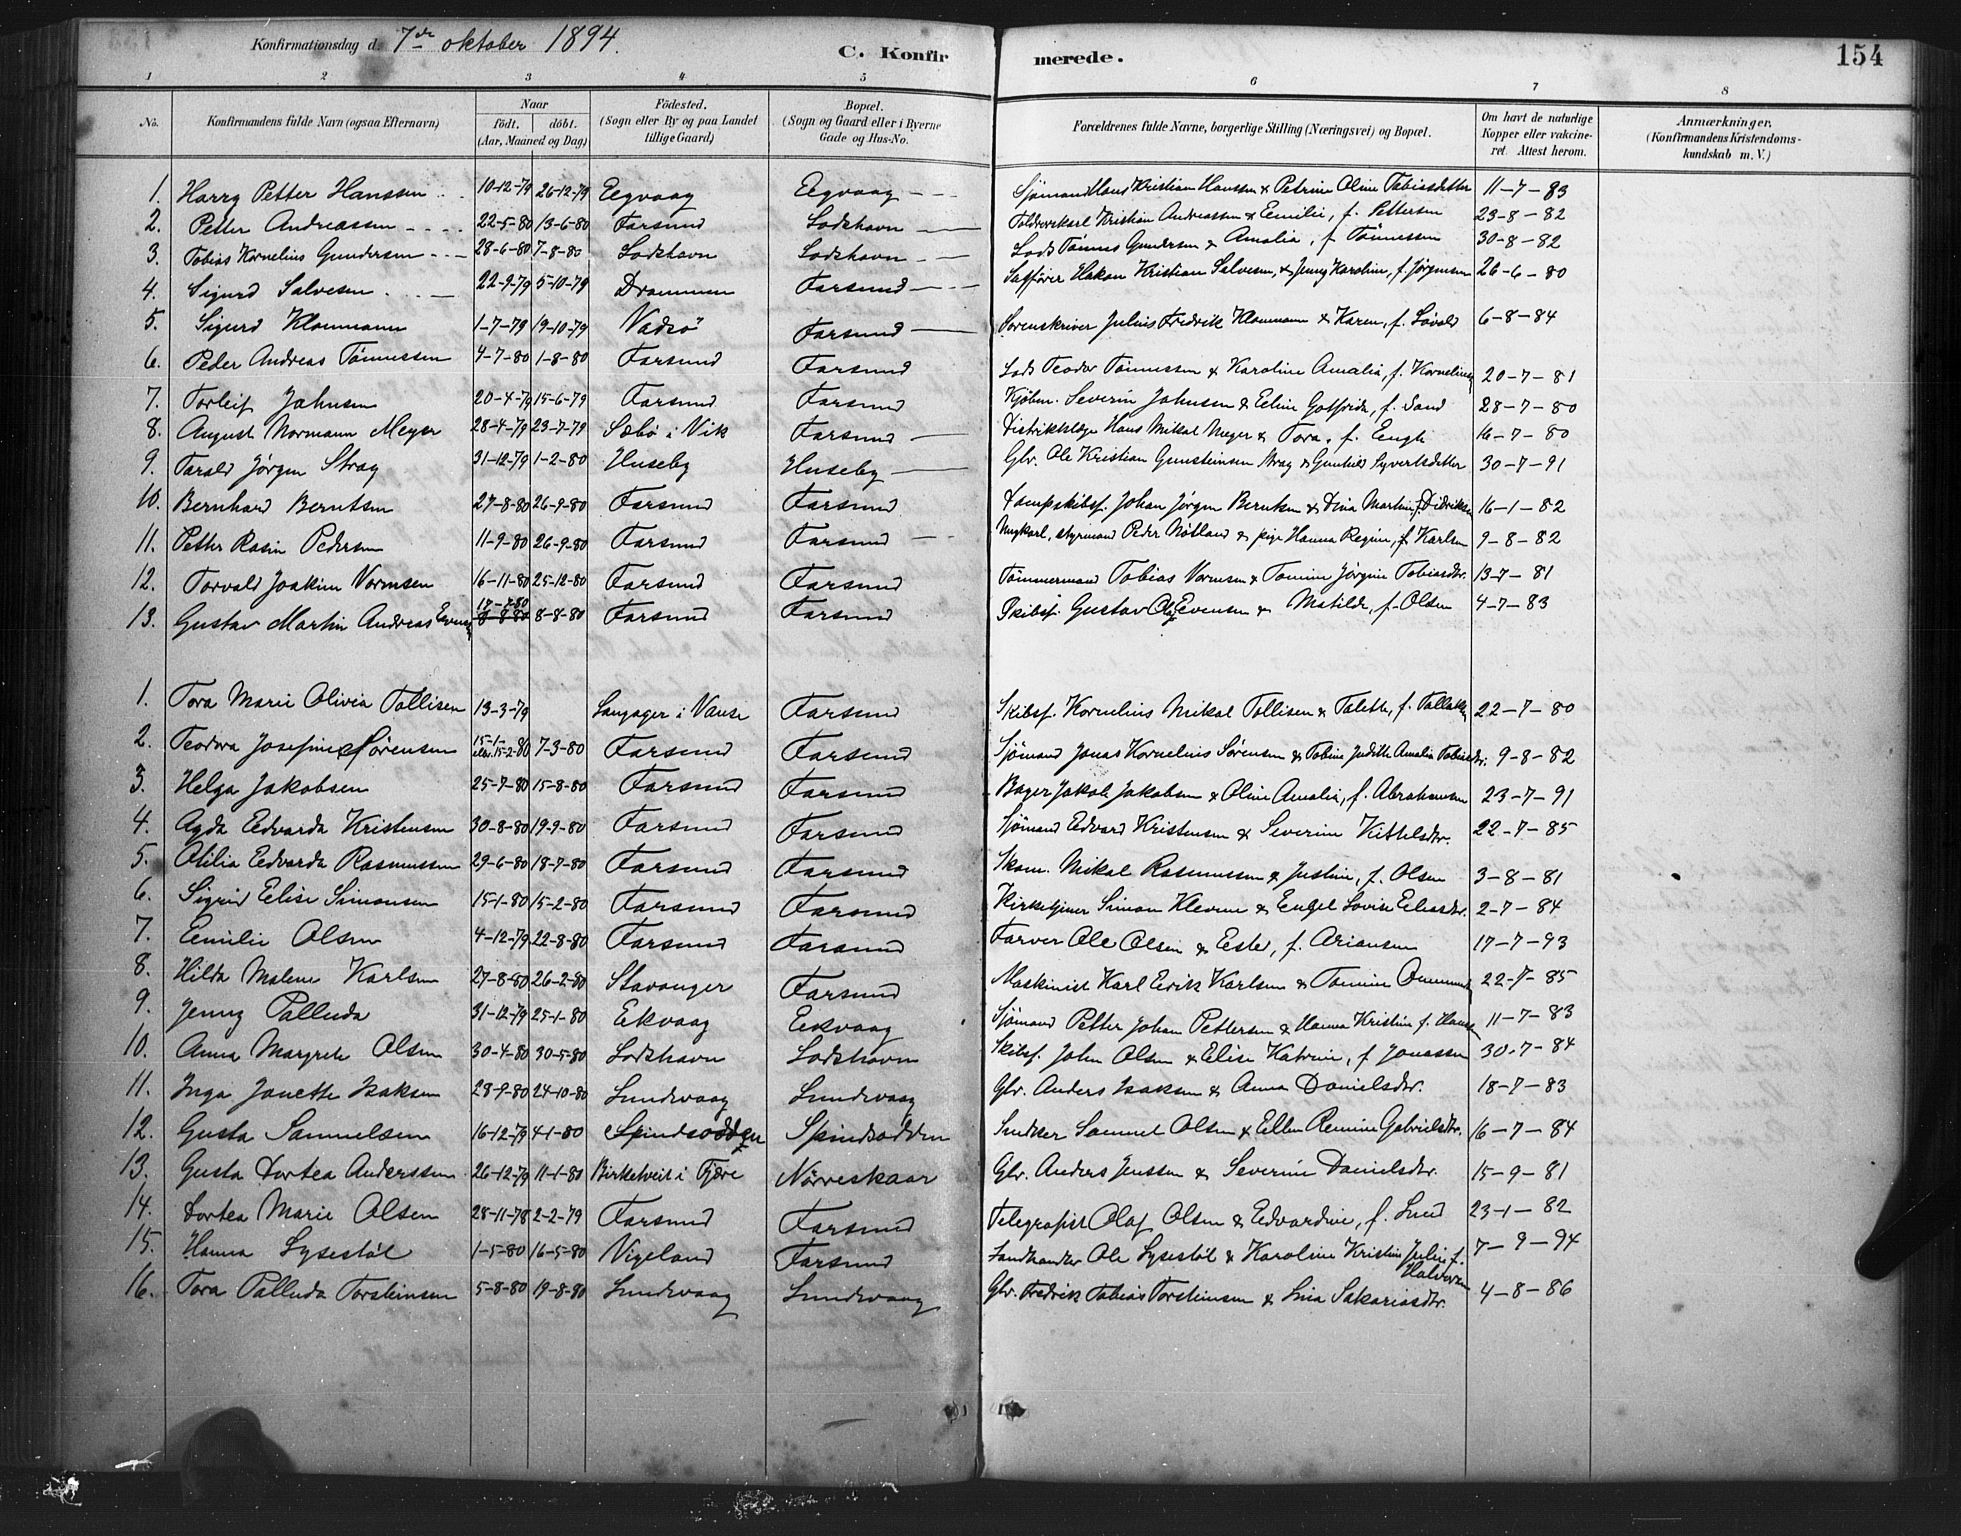 Konfirmationsdag d. 7de oktober 1894.
C. Konfirmerede.
154
1 2 3 4 5 6 7 8
No. Konfirmandens fulde Navn (ogsaa Efternavn) Naar födt. döbt. (Aar, Maaned og Dag) Födested. (Sogn eller By og paa Landet tillige Gaard) Bopæl. (Sogn og Gaard eller i Byerne Gade og Hus-No. Forældrenes fulde Navne, borgerlige Stilling (Næringsvei) og Bopæl. Om havt de naturlige Kopper eller vakcineret. Attest herom. Anmærkninger. (Konfirmandens Kristendomskundskab m. V.)
1. Harry Petter Hanssen 10-12-79 26-12-79 Eegvaag Eegvaag Sjömand Hans Kristian Hanssen & Petrine Oline Tobiasdatter 11-7-83
2. Petter Andreassen 22-5-80 13-6-80 Farsund Lodshavn Kristian Andreassen & Eemilie, f. Pettersen 23-8-82
3. Tobias Kornelius Gundersen 28-6-80 7-8-80 Lodshavn Lodshavn Lods Tönnes Gundersen & Amalia, f. Tönnessen 30-8-82
4. Sigurd Salvesen 22-9-79 5-10-79 Drammen Farsund Hakon Kristian Salvesen, & Jenny Karoline, f. Jörgensen 26-6-80
5. Sigurd Kloumann 1-7-79 19-10-79 Vadsö Farsund Sorenskriver Julius Fredrik Kloumann & Karen, f. Lövold 6-8-84
6. Peder Andreas Tönnessen 4-7-80 1-8-80 Farsund Farsund Lods Teodor Tönnessen & Karoline Amalia, f. Korneliusen 20-7-81
7. Torleif Johnsen 20-4-79 15-6-79 Farsund Farsund Kjöbm. Severin Johnsen & Eeline Gotfrida, f. Sand 28-7-80
8. August Normann Meyer 28-4-79 23-7-79 Sæbö i Vik Farsund Distriktslæge Hans Mikal Meyer & Tora, f. Eengh 16-7-80
9. Tarald Jörgen Stray 31-12-79 1-2-80 Huseby Huseby Gbr. Ole Kristian Gunsteinsen Stray & Gunhild Syvertsdatter 30-7-91
10. Bernhard Berntsen 27-8-80 26-9-80 Farsund Farsund Dampskibsf. Johan Jörgen Berntsen & Dina Martine, f. Didriksen 16-1-82
11. Petter Rosin Pedersen 11-9-80 26-9-80 Farsund Farsund Ungkarl, styrmand Peder Nötland & pige Hanna Regine, f. Karlsen 9-8-82
12. Torvald Joakim Vormsen 16-11-80 25-12-80 Farsund Farsund Tömmermand Tobias Vormsen & Tomine Jörgine Tobiasdtr. 13-7-81
13. Gustav Martin Andreas Evensen 17-2-80 8-8-80 8-4-80 Farsund Farsund Skibsf. Gustav Olaj Evensen & Matilde, f. Olsen 4-7-83
1. Tora Marie Olivia Tollisen 13-3-79 Langager i Vanse Farsund Skibsf. Kornelius Mikal Tollisen & Talette, f. Tallaksen 22-7-80
2. Teodora Josefine Sörensen 15-1-80 eller 15-2-80 7-3-80 Farsund Farsund Sjömand Jonas Kornelius Sörensen & Tobine Juditte Amalia Tobiasdtr. 9-8-82
3. Helga Jakobsen 25-7-80 15-8-80 Farsund Farsund Bager Jakob Jakobsen & Oline Amalia, f. Abrahamsen 23-7-91
4. Agda Eedvarda Kristensen 30-8-80 19-9-80 Farsund Farsund Sjömand Edvard Kristensen & Severine Kittelsdtr. 22-7-85
5. Otilia Eedvarda Rasmussen 29-6-80 18-7-80 Farsund Farsund Skom. Mikal Rasmussen & Justine, f. Olsen 3-8-81
6. Sigrid Eelise Simonsen 15-1-80 15-2-80 Farsund Farsund Kirketjener Simon Klevene & Engel Lovise Eeliasdtr. 2-7-84
7. Eemilie Olsen 4-12-79 22-8-80 Farsund Farsund Farver Ole Olsen & Eester, f. Ariansen 17-7-93
8. Hilda Malene Karlsen 27-8-80 26-2-80 Stavanger Farsund Maskinist Karl Eerik Karlsen & Tomine 22-7-85
9. Jenny Palluda 31-12-79 25-1-80 Eekvaag Eekvaag Sjömand Petter Johan Pettersen & Hanna Kristine f. Hansen 11-7-83
10. Anna Margrete Olsen 30-4-80 30-5-80 Lodshavn Lodshavn Skibsf. John Olsen & Eelise Katrine, f. Jonassen 30-7-84
11. Inga Janette Isaksen 28-9-80 24-10-80 Lundevaag Lundevaag Gbr. Anders Isaksen & Anna Danielsdtr. 18-7-83
12. Gusta Samuelsen 16-12-79 4-1-80 Spindsodden Spindsodden Snedker Samuel Olsen & Ellen Remine Gabrielsdtr. 16-7-84
13. Gusta Dortea Anderssen 26-12-79 11-1-80 Birketveit i Fjære Nörreskaar Gbr. Anders Jenssen & Severine Danielsdtr. 15-9-81
14. Dortea Marie Olsen 28-11-78 2-2-79 Farsund Farsund Telegrafist Olaf Olsen & Eedvardine, f. Lund 23-1-82
15. Hanna Lysestöl 1-5-80 16-5-80 Vigeland Farsund Landhandler Ole Lysestöl & Karoline Kristine Julie f. Halvorsen 7-9-94
16. Tora Palluda Torsteinsen 5-8-80 19-8-80 Lundevaag Lundevaag Gbr. Fredrik Tobias Torsteinsen & Lina Sakariasdtr. 4-8-86